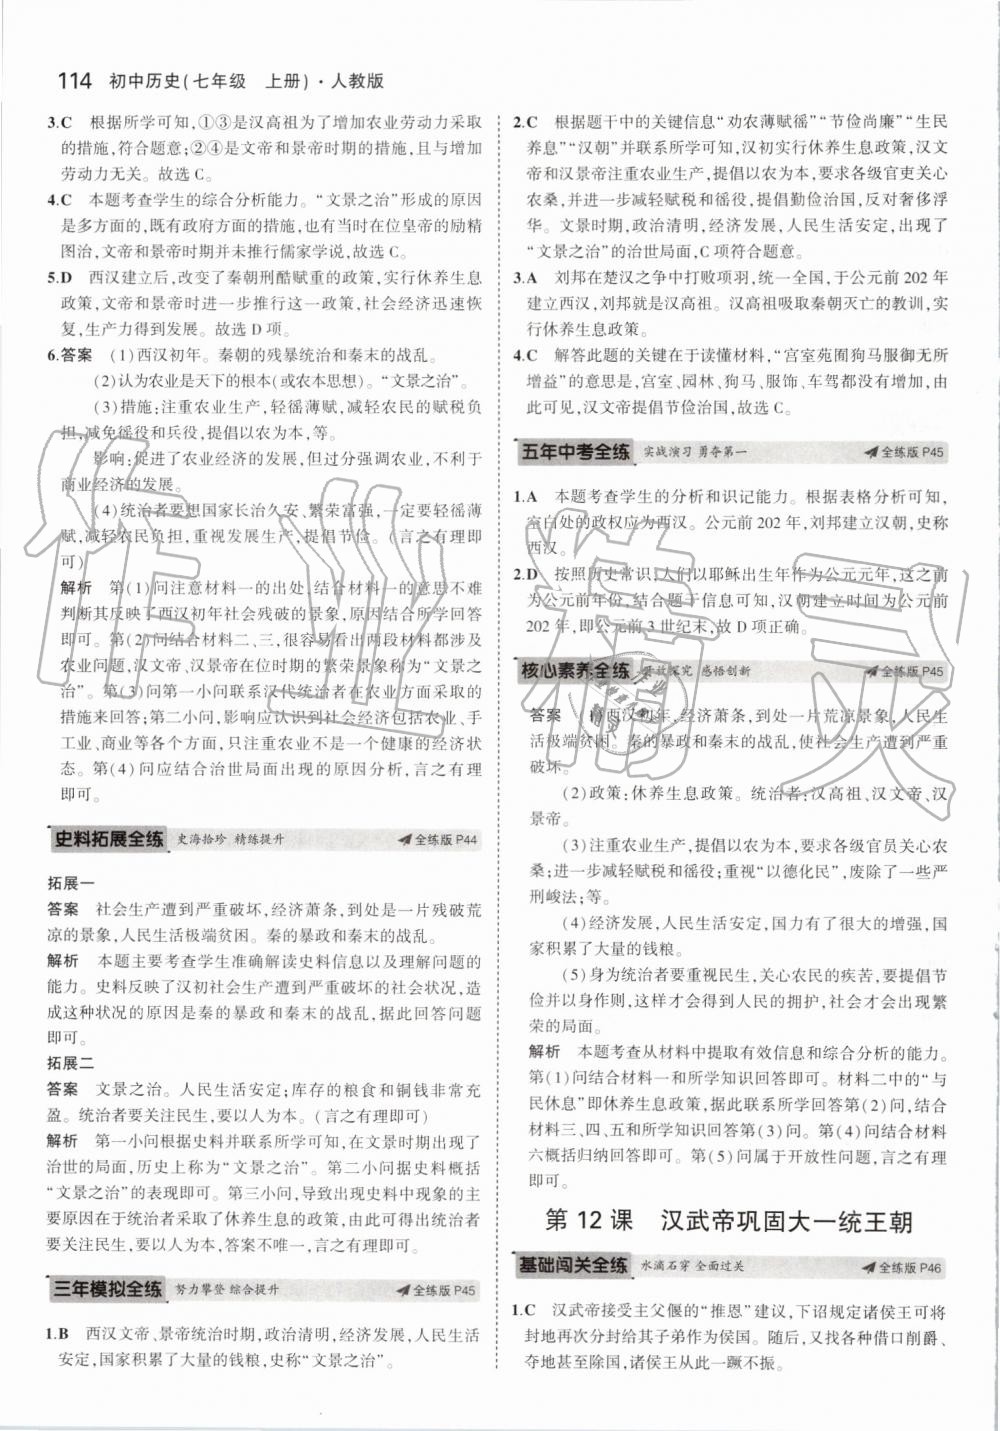 114 初中历史(七年级 上册)·人教版
3.C 根据所学可知,①③是汉高祖为了增加农业劳动力采取
的措施,符合题意;②④是文帝和景帝时期的措施,且与增加
劳动力无关。故选C。
4.C 本题考查学生的综合分析能力。“文景之治”形成的原因
是多方面的,既有政府方面的措施,也有当时在位皇帝的励精
图治,文帝和景帝时期并未推行儒家学说,故选C。
5.D 西汉建立后,改变了秦朝刑酷赋重的政策,实行休养生息
政策,文帝和景帝时进一步推行这一政策,社会经济迅速恢
复,生产力得到发展。故选D项。
6.答案 (1)西汉初年。秦朝的残暴统治和秦末的战乱。
(2)认为农业是天下的根本(或农本思想)。“文景之治”。
(3)措施:注重农业生产,轻徭薄赋,减轻农民的赋税负
担,减免徭役和兵役,提倡以农为本,等。
影响:促进了农业经济的发展,但片面强调农业,不利于
商业经济的发展。
(4)统治者要想国家长治久安、繁荣富强,一定要轻徭薄
赋,减轻农民负担,重视发展生产,提倡节俭。(言之有理即
可)
解析 第(1)问注意材料一的出处,结合材料一的意思不难
判断其反映了西汉初年社会残破的景象,原因结合所学回答
即可。第(2)问结合材料二、三,很容易看出两段材料都涉及
农业问题,汉文帝、汉景帝在位时期的繁荣景象称为“文景之
治”。第(3)问第一小问联系汉代统治者在农业方面采取的
措施来回答;第二小问,影响应认识到社会经济包括农业、手
工业、商业等各个方面,只注重农业不是一个健康的经济状
态。第(4)问应结合治世局面出现的原因分析,言之有理
即可。
史料拓展全练 史海拾珍 精练提升 全练版P44
拓展一
答案 社会生产遭到严重破坏,经济萧条,到处是一片残破荒
凉的景象,人民生活极端贫困。秦的暴政和秦末的战乱。
解析 本题主要考查学生准确解读史料信息以及理解问题的
能力。史料反映了汉初社会生产遭到严重破坏的社会状况,造
成这种状况的原因是秦的暴政和秦末的战乱,据此回答问题
即可。
拓展二
答案 文景之治。人民生活安定;库存的粮食和铜钱非常充
盈。统治者要关注民生,要以人为本。(言之有理即可)
解析 第一小问根据史料并联系所学可知,在文景时期出现了
治世的局面,历史上称为“文景之治”。第二小问据史料概括
“文景之治”的表现即可。第三小问,导致出现史料中现象的主
要原因在于统治者采取了休养生息的政策,由此可得出统治者
要关注民生,要以人为本,答案不唯一、言之有理即可。
三年模拟全练 努力攀登 综合提升 全练版P45
1.B 西汉文帝、景帝统治时期,政治清明,经济发展,人民生活
安定,国家积累了大量的钱粮,史称“文景之治”。
2.C 根据题干中的关键信息“劝农薄赋徭”“节俭尚廉”“生民
养息”“汉朝”并联系所学可知,汉初实行休养生息政策。汉文
帝和汉景帝注重农业生产,提倡以农为本,要求各级官吏关心
农桑,进一步减轻赋税和徭役,提倡勤俭治国,反对奢侈浮
华。文景时期,政治清明,经济发展,人民生活安定,出现了
“文景之治”的治世局面,C项符合题意。
3.A 刘邦在楚汉之争中打败项羽,统一全国,于公元前202年
建立西汉,刘邦就是汉高祖。汉高祖吸取秦朝灭亡的教训,实
行休养生息政策。
4.C 解答此题的关键在于读懂材料,“宫室苑囿狗马服御无所
增益”的意思是,宫室、园林、狗马、服饰、车驾都没有增加,由
此可见,汉文帝提倡节俭治国,故选C。
五年中考全练 实战演习 勇夺第一 全练版P45
1.A 本题考查学生的分析和识记能力。根据表格分析可知,
空白处的政权应为西汉。公元前202年,刘邦建立汉朝,史称
西汉。
2.D 按照历史常识,人们以耶稣出生年作为公元元年,这之前
为公元前年份,结合题干信息可知,汉朝建立时间为公元前
202年,即公元前3世纪末,故D项正确。
核心素养全练 开放探究 感悟创新 全练版P45
答案 西汉初年,经济萧条,到处一片荒凉景象,人民生
活极端贫困。秦的暴政和秦末的战乱,使社会生产遭到严重
破坏。
(2)政策:休养生息政策。统治者:汉高祖、汉文帝、汉
景帝。
(3)注重农业生产,提倡以农为本,要求各级官员关心农
桑;进一步减轻赋税和徭役;重视“以德化民”,废除了一些严
刑峻法;等。
(4)经济发展,人民生活安定,国力有了很大的增强,国
家积累了大量的钱粮。
(5)身为统治者要重视民生,关心农民的疾苦,要提倡节
俭并以身作则,这样才会得到人民的拥护,社会才会出现繁
荣的局面。
解析 本题考查从材料中提取有效信息和综合分析的能力。
第(1)问结合材料一和所学知识回答即可。材料二中的“与
民休息”即休养生息政策,据此联系所学回答第(2)问,结合
材料三、四、五和所学知识回答第(3)问。第(4)问结合材料
六概括归纳回答即可。第(5)问属于开放性问题,言之有理
即可。
第12课 汉武帝巩固大一统王朝
基础闯关全练 水滴石穿 全面过关 全练版P46
1.C 汉武帝接受主父偃的“推恩”建议,下诏规定诸侯王可将
封地再次分封给其子弟作为侯国。随后,又找各种借口削爵、
夺地甚至除国,诸侯王从此一蹶不振。
作业精灵